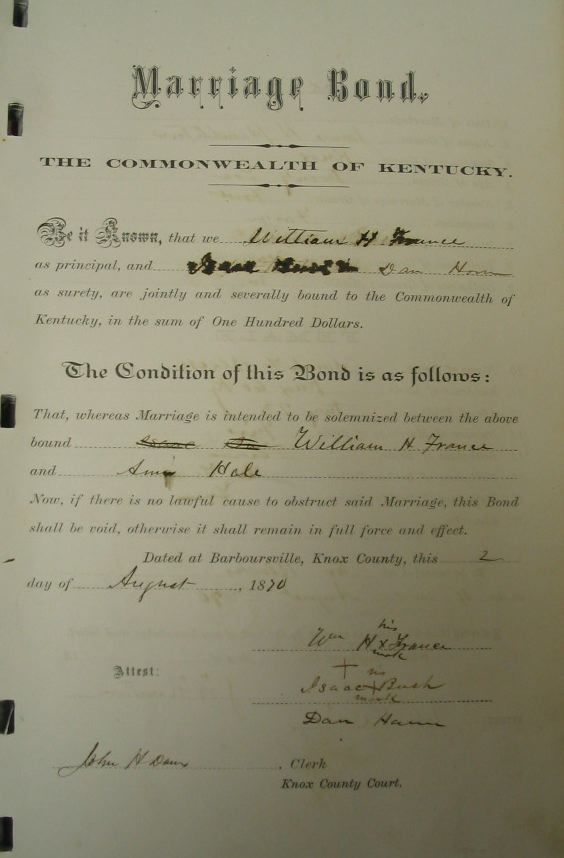 Marriage Bond.
THE COMMONWEALTH OF KENTUCKY.
Be it Known, that we William H France
as principal, and Dan
as surety, are jointly and severally bound to the Commonwealth of
Kentucky, in the sum of One Hundred Dollars.
The Condition of this Bond is as follows:
That, whereas Marriage is intended to be solemnized between the above
bound William H. France
and Hale
Now, if there is no lawful cause to obstruct said Marriage, this Bond
shall be void, otherwise it shall remain in full force and effect.
Dated at Barboursville, Knox County, this 2
day of August, 1870
his
Wm H x France
mark
Attest:
Isaac + Bush
mark
Dan
John H
, Clerk
Knox County Court.